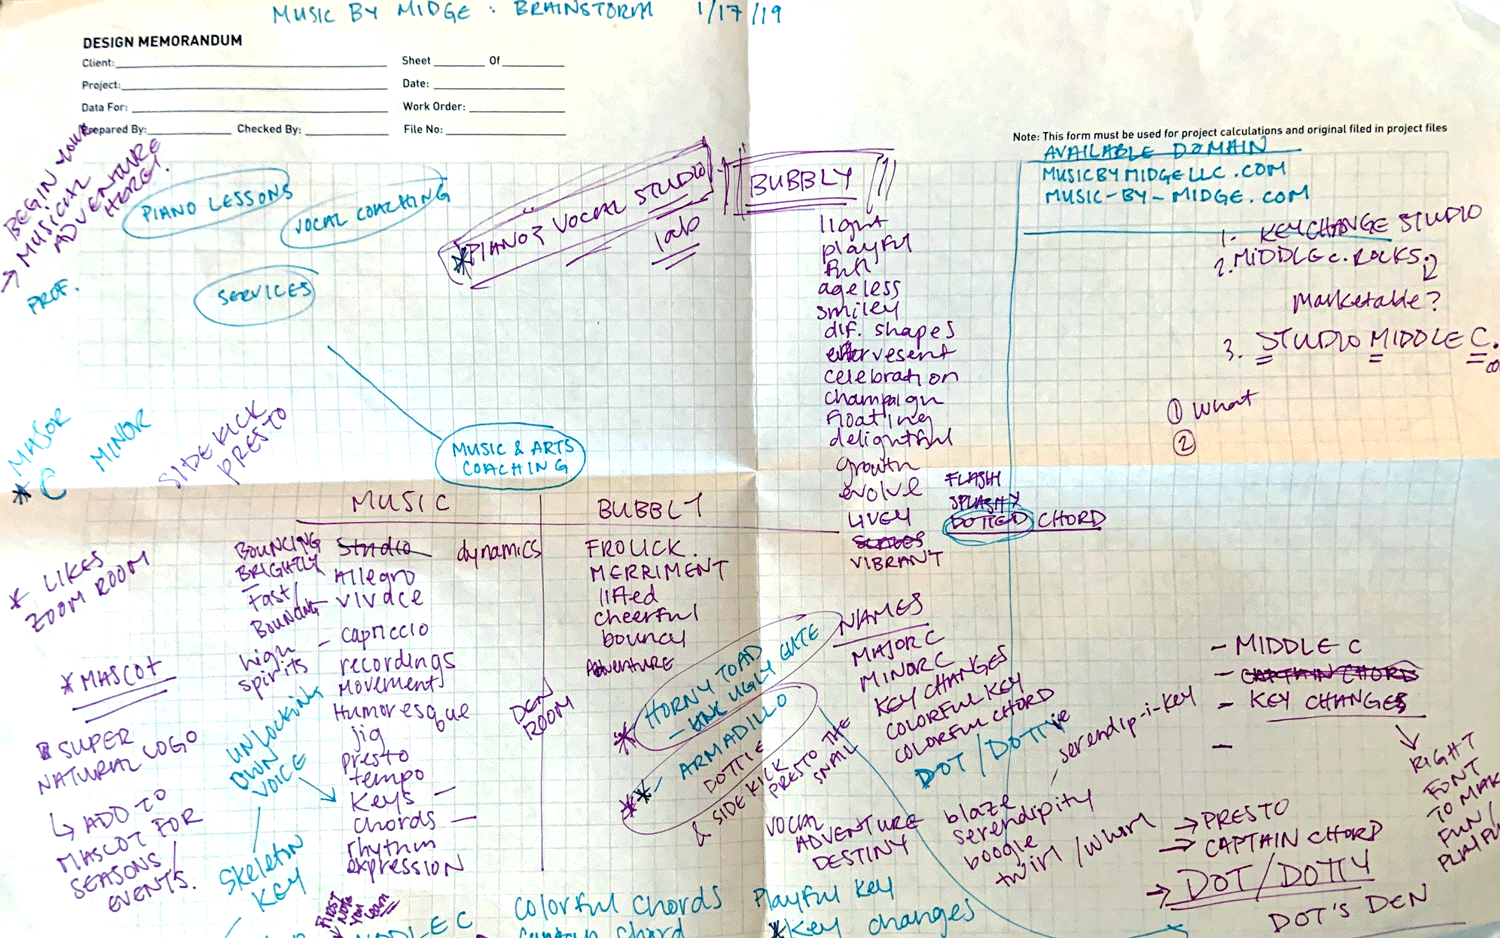 MUSIC BY MIDGE : BRAINSTORM 1/17/19
DESIGN MEMORANDUM
Client:
Sheet Of
Project:
Date:
Data For:
Work Order:
Prepared By:
Checked By:
File No:
Note: This form must be used for project calculations and original filed in project files
BEGIN YOUR
MUSICAL
ADVENTURE
HERE!
PROF.
PIANO LESSONS
VOCAL COACHING
SERVICES
MUSIC & ARTS
COACHING
PIANO & VOCAL STUDIO
lab
BUBBLY
light
playful
fun
ageless
smiley
dif. shapes
effervesent
celebration
champaign
floating
delightful
growth
evolve
LIVELY
SCALES
VIBRANT
FLASH
SPLASHY
DOTTED CHORD
AVAILABLE DOMAIN
MUSICBYMIDGELLC.COM
MUSIC-BY-MIDGE.COM
1. KEYCHANGE STUDIO
2. MIDDLE C. ROCKS.
Marketable?
3. STUDIO MIDDLE C.
CO
① What
②
MAJOR
C
MINOR
SIDE KICK
PRESTO
* LIKES
ZOOM ROOM
* MASCOT
SUPER
NATURAL LOGO
↳ ADD TO
MASCOT FOR
SEASONS/
EVENTS.
MUSIC
BOUNCING
BRIGHTLY
Fast/
BOUNCING
high
spirits
UNLOCKING
OWN
VOICE
Skeletin
KEY
Studio
dynamics
Allegro
vivace
- capriccio
recordings
Movements
Humoresque
jig
presto
tempo
Keys -
chords -
rhythm
expression
FIRST
NOTE
YOU
LEARN
BUBBLY
FROLICK.
MERRIMENT
lifted
cheerful
bouncy
ADVENTURE
DEN
ROOM
* HORNY TOAD
- LIKE UGLY CUTE
** - ARMADILLO
DOTTIE
& SIDE KICK
PRESTO THE
SNAIL
NAMES
MAJOR C
MINOR C
KEY CHANGES
COLORFUL KEY
COLORFUL CHORD
DOT/DOTTIE
serendip-i-key
VOCAL
ADVENTURE
DESTINY
blaze
serendipity
boogie
twirl/whirl
- MIDDLE C
- CAPTAIN CHORD
- KEY CHANGES
-
RIGHT
FONT
TO MAKE
FUN/
→ PRESTO
→ CAPTAIN CHORD
→ DOT/DOTTY
DOT'S DEN
MIDDLE C
Colorful Chords
Captain chord
Playful Key
* Key changes